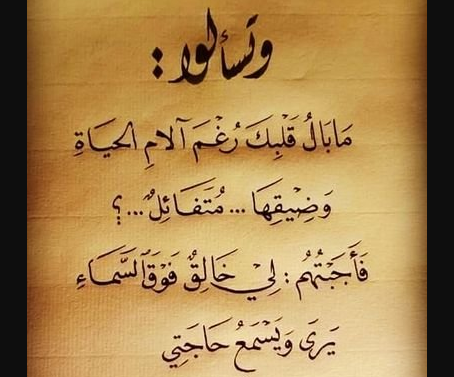 وتسألوا :
مَابَالُ قَلْبِكَ رُغْمَ آلامِ الحَيَاةِ
وَضِيقِهَا ... مُتَفَائِلٌ ... ؟
فَأَجَبْتُهُم : لِيْ خَالِقٌ فَوْقَ السَّمَاءِ
يَرَى وَيَسْمَعُ حَاجَتِي